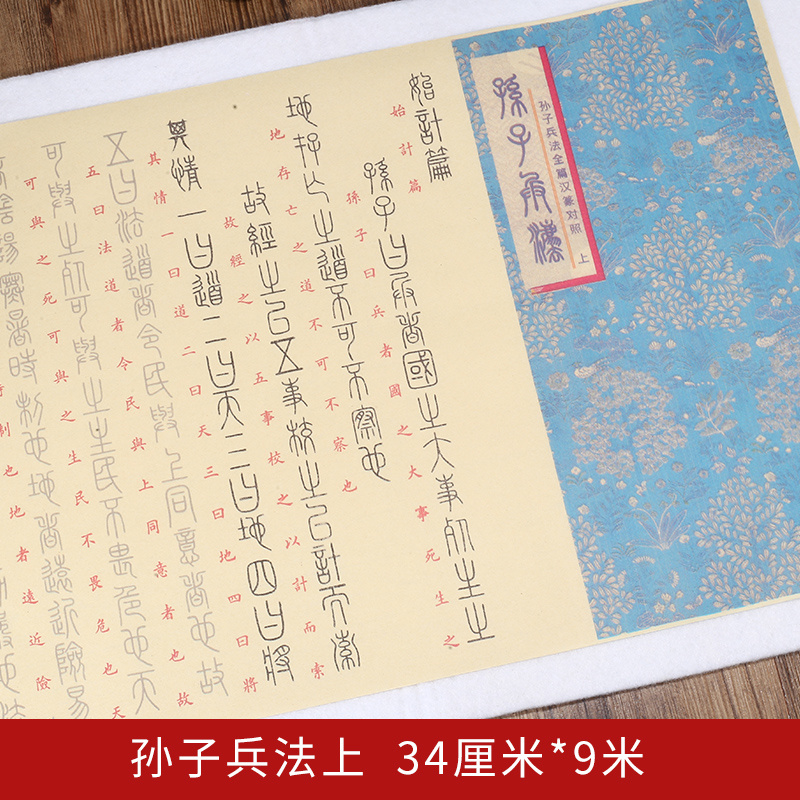 孫子兵法
孙子兵法全篇汉篆对照 上
始計篇
始計篇
孫子曰兵者國之大事死生之
孫子曰兵者國之大事死生之
地存亡之道不可不察也
地存亡之道不可不察也
故經之以五事校之以計而索
故經之以五事校之以計而索
其情一曰道二曰天三曰地四曰將
其情一曰道二曰天三曰地四曰將
五曰法道者令民與上同意者也故
五曰法道者令民與上同意者也故
可與之死可與之生民不畏危也天
可與之死可與之生民不畏危也天
陰陽寒暑時制也地者遠近險易
制也地者遠近險
孙子兵法上 34厘米*9米